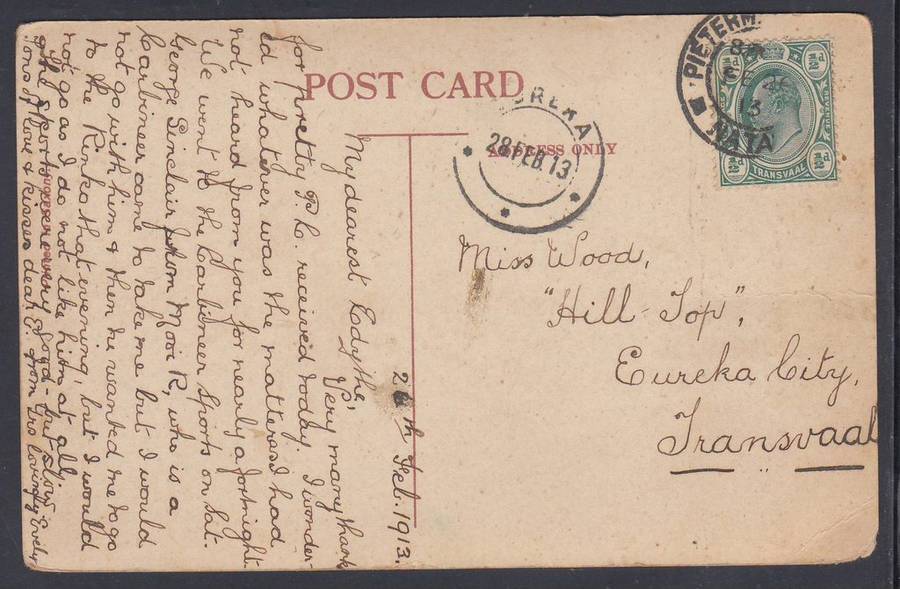 POST CARD
ADDRESS ONLY
PIETERM
NATA
UREKA
28 FEB. 13
½d
½d
½d
½d
TRANSVAAL
Miss Wood,
"Hill-Top",
Eureka City,
Transvaal
26th Feb. 1913.
My dearest Edythe,
Very many thanks
for pretty P.C. received today. I wonder-
ed whatever was the matter as I had
not heard from you for nearly a fortnight
We went to the Carbineer Sports on Sat.
George Sinclair from Mooi R, who is a
Carbineer came to take me but I would
not go with him & then he wanted me to go
to the Rinko that evening, but I would
not go as I do not like him at all.
The sports were very good - but slow
love & kisses dear E. from Yrs lovingly Evelyn